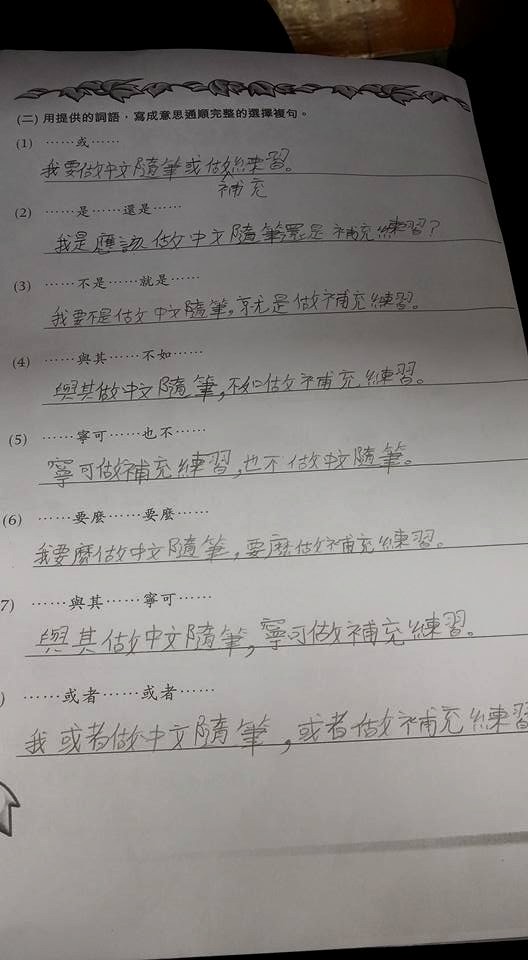 (二) 用提供的詞語，寫成意思通順完整的選擇複句。
(1) ……或……
我要做中文隨筆或做練習。
補充
(2) ……是……還是……
我是應該做中文隨筆還是補充練習？
(3) ……不是……就是……
我要不是做中文隨筆，就是做補充練習。
(4) ……與其……不如……
與其做中文隨筆，不如做補充練習。
(5) ……寧可……也不……
寧可做補充練習，也不做中文隨筆。
(6) ……要麼……要麼……
我要麼做中文隨筆，要麼做補充練習。
7) ……與其……寧可……
與其做中文隨筆，寧可做補充練習。
) ……或者……或者……
我或者做中文隨筆，或者做補充練習